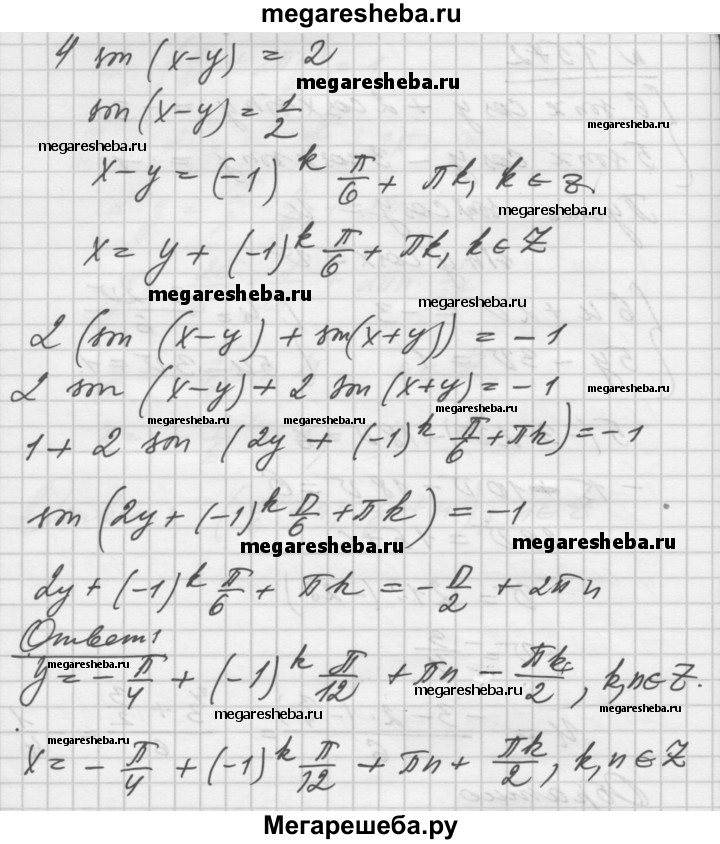 megaresheba.ru
4 sin (x-y) = 2
megaresheba.ru
sin (x-y) = 1/2
megaresheba.ru
megaresheba.ru
x-y = (-1)^k π/6 + πk, k ∈ Z
megaresheba.ru
x = y + (-1)^k π/6 + πk, k ∈ Z
megaresheba.ru
megaresheba.ru
2 (sin (x-y) + sin(x+y)) = -1
2 sin (x-y) + 2 sin (x+y) = -1
megaresheba.ru
megaresheba.ru
megaresheba.ru
megaresheba.ru
1 + 2 sin (2y + (-1)^k π/6 + πk) = -1
sin (2y + (-1)^k π/6 + πk) = -1
megaresheba.ru
megaresheba.ru
2y + (-1)^k π/6 + πk = -π/2 + 2πn
Ответ:
megaresheba.ru
y = -π/4 + (-1)^k π/12 + πn - πk/2, k, n ∈ Z.
megaresheba.ru
megaresheba.ru
megaresheba.ru
megaresheba.ru
x = -π/4 + (-1)^k π/12 + πn + πk/2, k, n ∈ Z
Мегарешеба.ру